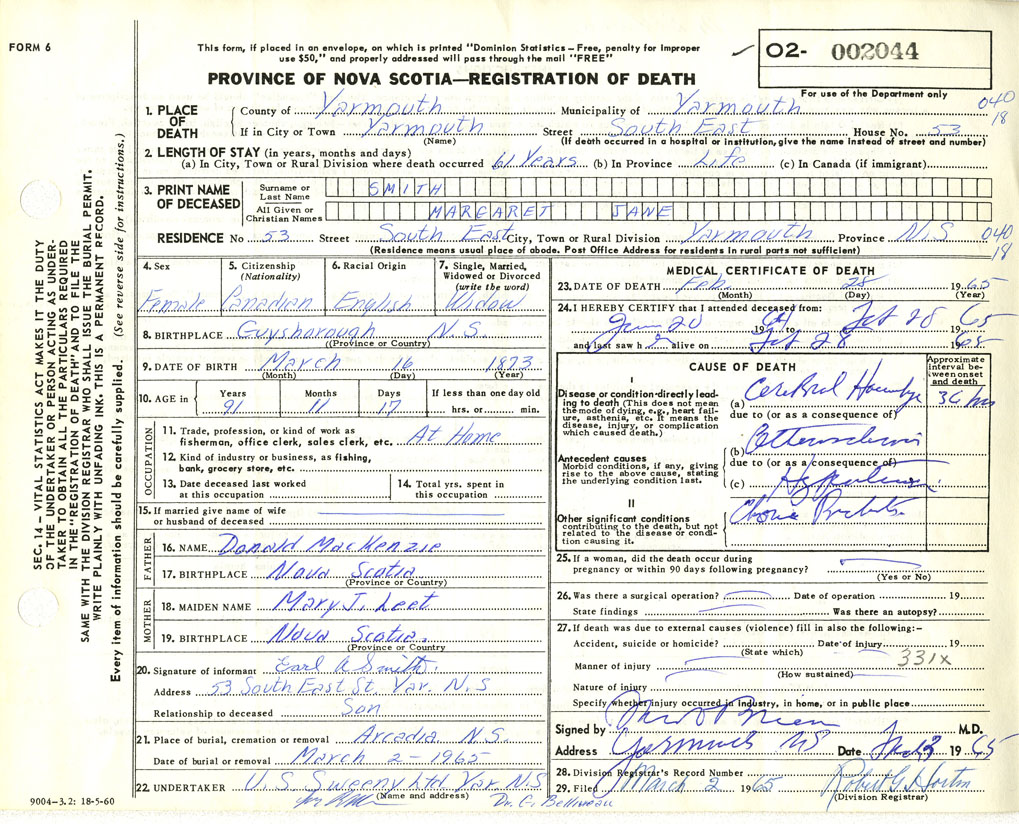 FORM 6
This form, if placed in an envelope, on which is printed "Dominion Statistics – Free, penalty for improper
use $50," and properly addressed will pass through the mail "FREE"
PROVINCE OF NOVA SCOTIA—REGISTRATION OF DEATH
O2- 002044
For use of the Department only
040
18
1. PLACE OF DEATH
County of Yarmouth Municipality of Yarmouth
If in City or Town Yarmouth Street South East House No. 53
(Name) (If death occurred in a hospital or institution, give the name instead of street and number)
2. LENGTH OF STAY (in years, months and days)
(a) In City, Town or Rural Division where death occurred 61 Years (b) In Province Life (c) In Canada (if immigrant)
3. PRINT NAME OF DECEASED
Surname or Last Name SMITH
All Given or Christian Names MARGARET JANE
RESIDENCE No 53 Street South East City, Town or Rural Division Yarmouth Province N.S 040
18
(Residence means usual place of abode. Post Office Address for residents in rural parts not sufficient)
4. Sex 5. Citizenship (Nationality) 6. Racial Origin 7. Single, Married, Widowed or Divorced (write the word)
Female Canadian English Widow
8. BIRTHPLACE Guysborough N.S.
(Province or Country)
9. DATE OF BIRTH March 16 1873
(Month) (Day) (Year)
10. AGE in Years Months Days If less than one day old
91 11 17 hrs. or min.
OCCUPATION
11. Trade, profession, or kind of work as
fisherman, office clerk, sales clerk, etc. At Home
12. Kind of industry or business, as fishing,
bank, grocery store, etc.
13. Date deceased last worked at this occupation
14. Total yrs. spent in this occupation
15. If married give name of wife
or husband of deceased
FATHER
16. NAME Donald MacKenzie
17. BIRTHPLACE Nova Scotia
(Province or Country)
MOTHER
18. MAIDEN NAME Mary J. Leet
19. BIRTHPLACE Nova Scotia.
(Province or Country)
20. Signature of informant Earl A Smith
Address 53 South East St. Yar. N.S
Relationship to deceased Son
21. Place of burial, cremation or removal Arcadia N.S.
Date of burial or removal March 2 - 1965
22. UNDERTAKER U.S Sweeny Ltd Yar. N.S
(Name and address)
Dr. C. Belliveau
9004–3.2: 18-5-60
MEDICAL CERTIFICATE OF DEATH
23. DATE OF DEATH Feb. 28 1965
(Month) (Day) (Year)
24. I HEREBY CERTIFY that I attended deceased from:
20 19 to Feb 28 1965
and last saw h alive on Feb 28 1965
CAUSE OF DEATH
Approximate interval between onset and death
I
Disease or condition directly leading to death (This does not mean the mode of dying, e.g., heart failure, asthenia, etc. It means the disease, injury, or complication which caused death.)
(a) Cerebral 36 hrs
due to (or as a consequence of)
Antecedent causes
Morbid conditions, if any, giving rise to the above cause, stating the underlying condition last.
(b)
due to (or as a consequence of)
(c)
II
Other significant conditions
contributing to the death, but not related to the disease or condition causing it.
25. If a woman, did the death occur during
pregnancy or within 90 days following pregnancy?
(Yes or No)
26. Was there a surgical operation? Date of operation 19
State findings Was there an autopsy?
27. If death was due to external causes (violence) fill in also the following:-
Accident, suicide or homicide? Date of injury 19
(State which)
331x
Manner of injury
(How sustained)
Nature of injury
Specify whether injury occurred in industry, in home, or in public place
Signed by M.D.
Address Yarmouth NS Date 1965
28. Division Registrar's Record Number
29. Filed March 2 1965 Robert G. Horton
(Division Registrar)
SEC. 14 – VITAL STATISTICS ACT MAKES IT THE DUTY
OF THE UNDERTAKER OR PERSON ACTING AS UNDER-
TAKER TO OBTAIN ALL THE PARTICULARS REQUIRED
IN THE "REGISTRATION OF DEATH" AND TO FILE THE
SAME WITH THE DIVISION REGISTRAR WHO SHALL ISSUE THE BURIAL PERMIT.
WRITE PLAINLY WITH UNFADING INK. THIS IS A PERMANENT RECORD.
Every item of information should be carefully supplied. (See reverse side for instructions.)